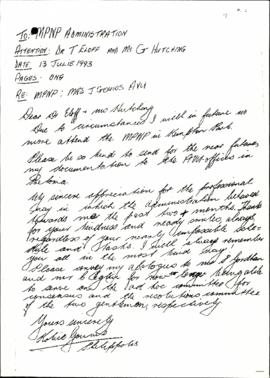 TO: MPNP ADMINISTRATION
ATTENTION: DR T ELOFF AND MR G HUTCHING
DATE: 13 JULIE 1993
PAGES: ONE
RE: MPNP: MRS J GOUWS AVU
Dear Dr Eloff + Mr Hutching
Due to circumstances I will in future no
more attend the MPNP in Kempton Park.
Please be so kind to send for the near future,
my documentation to the AVU offices in
Pretoria.
My sincere appreciation for the professional
way in which the administration behaved
towards me the past two + months. Thanks
for your kindness and ready smiles, always,
regardless of your nearly impossible
task. Thanks. I will always remember
you all in the most kind way.
Please convey my apologies to
and mr for no longer being able
to serve on the ad hoc committee for
consensus and the resolutions committee
of the two gentlemen, respectively.
Yours sincerely